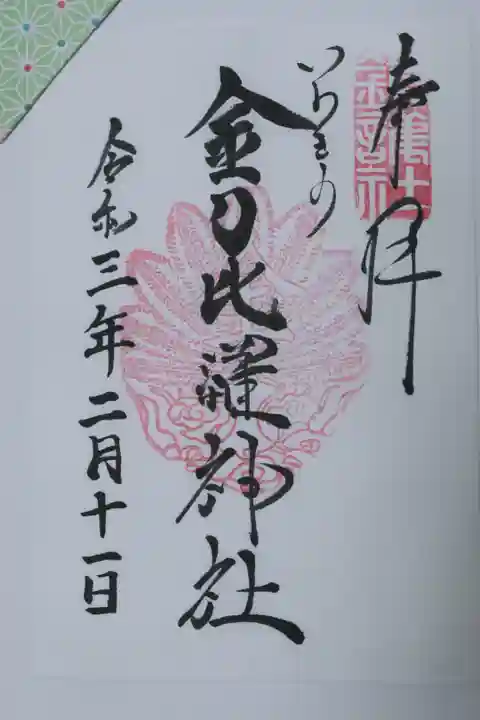 奉拝
金刀比羅神社
令和三年二月十一日